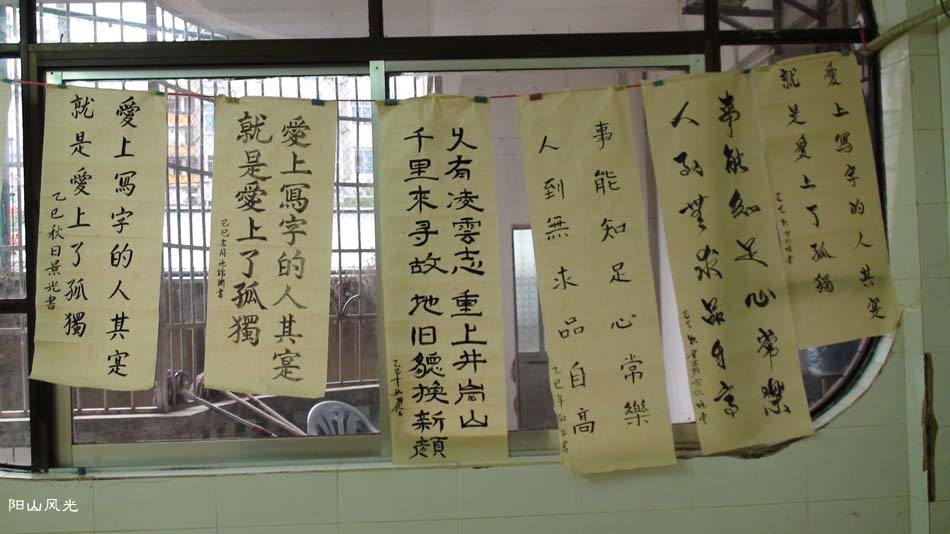 愛上寫字的人其寔
就是愛上了孤獨
乙巳秋日景光書
愛上寫字的人其寔
就是愛上了孤獨
乙巳吉月
久有凌雲志重上井崗山
千里來寻故地旧貌換新顏
乙巳年
事能知足心常樂
人到無求品自高
乙巳年
事能知足心常樂
人到無求品自高
乙巳
愛上寫字的人其寔
就是愛上了孤獨
乙巳
阳山风光